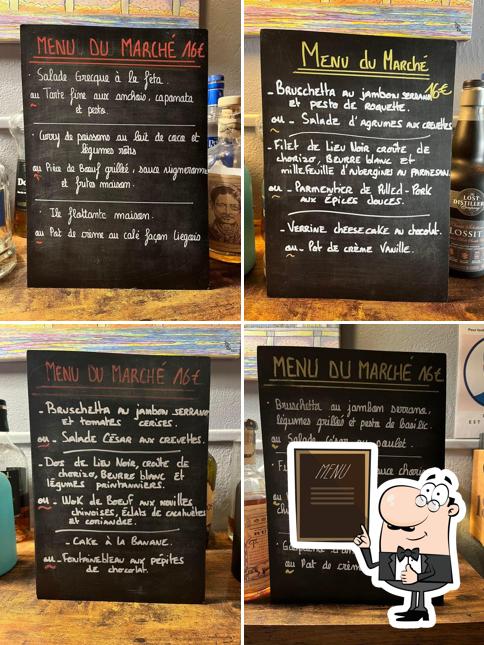 MENU DU MARCHÉ 16€
- Salade Grecque à la feta.
ou Tarte fine aux anchois, capamata
et pesto.
- Curry de poissons au lait de coco et
légumes rôtis
ou Pièce de Bœuf grillée, sauce vigneronne
et frites maison.
- Ile flottante maison.
ou Pot de crème au café façon liegeois
MENU DU MARCHÉ
16€
- BRUSCHETTA AU JAMBON SERRANO
ET PESTO DE ROQUETTE.
OU - SALADE D'AGRUMES AUX CREVETTES
- FILET DE LIEU NOIR CROÛTE DE
CHORIZO, BEURRE BLANC ET
MILLEFEUILLE D'AUBERGINES AU PARMESAN
OU - PARMENTIER DE PULLED-PORK
AUX ÉPICES DOUCES.
- VERRINE CHEESECAKE AU CHOCOLAT.
OU - POT DE CRÈME VANILLE.
LOST
DISTILLERY
LOSSIT
MENU DU MARCHÉ 16€
- BRUSCHETTA AU JAMBON SERRANO
ET TOMATES CERISES.
OU - SALADE CÉSAR AUX CREVETTES.
- DOS DE LIEU NOIR, CROÛTE DE
CHORIZO, BEURRE BLANC ET
LÉGUMES PRINTANNIERS.
OU - WOK DE BOEUF AUX NOUILLES
CHINOISES, ÉCLATS DE CACAHUÈTES
ET CORIANDRE.
- CAKE À LA BANANE.
OU - FONTAINEBLEAU AUX PÉPITES
DE CHOCOLAT.
MENU DU MARCHÉ 16€
- Bruschetta au jambon serrano,
légumes grillés et pesto de basilic.
ou Salade César au poulet.
sauce chorizo
ou
ou Pot de crème
MENU
EST